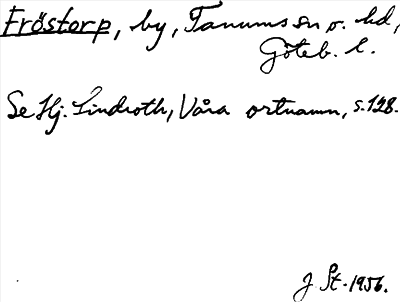 Fröstorp, by, Tanums sn o. hd,
Göteb. l.
Se Hj. Lindroth, Våra ortnamn, s. 128.
J St. 1956.